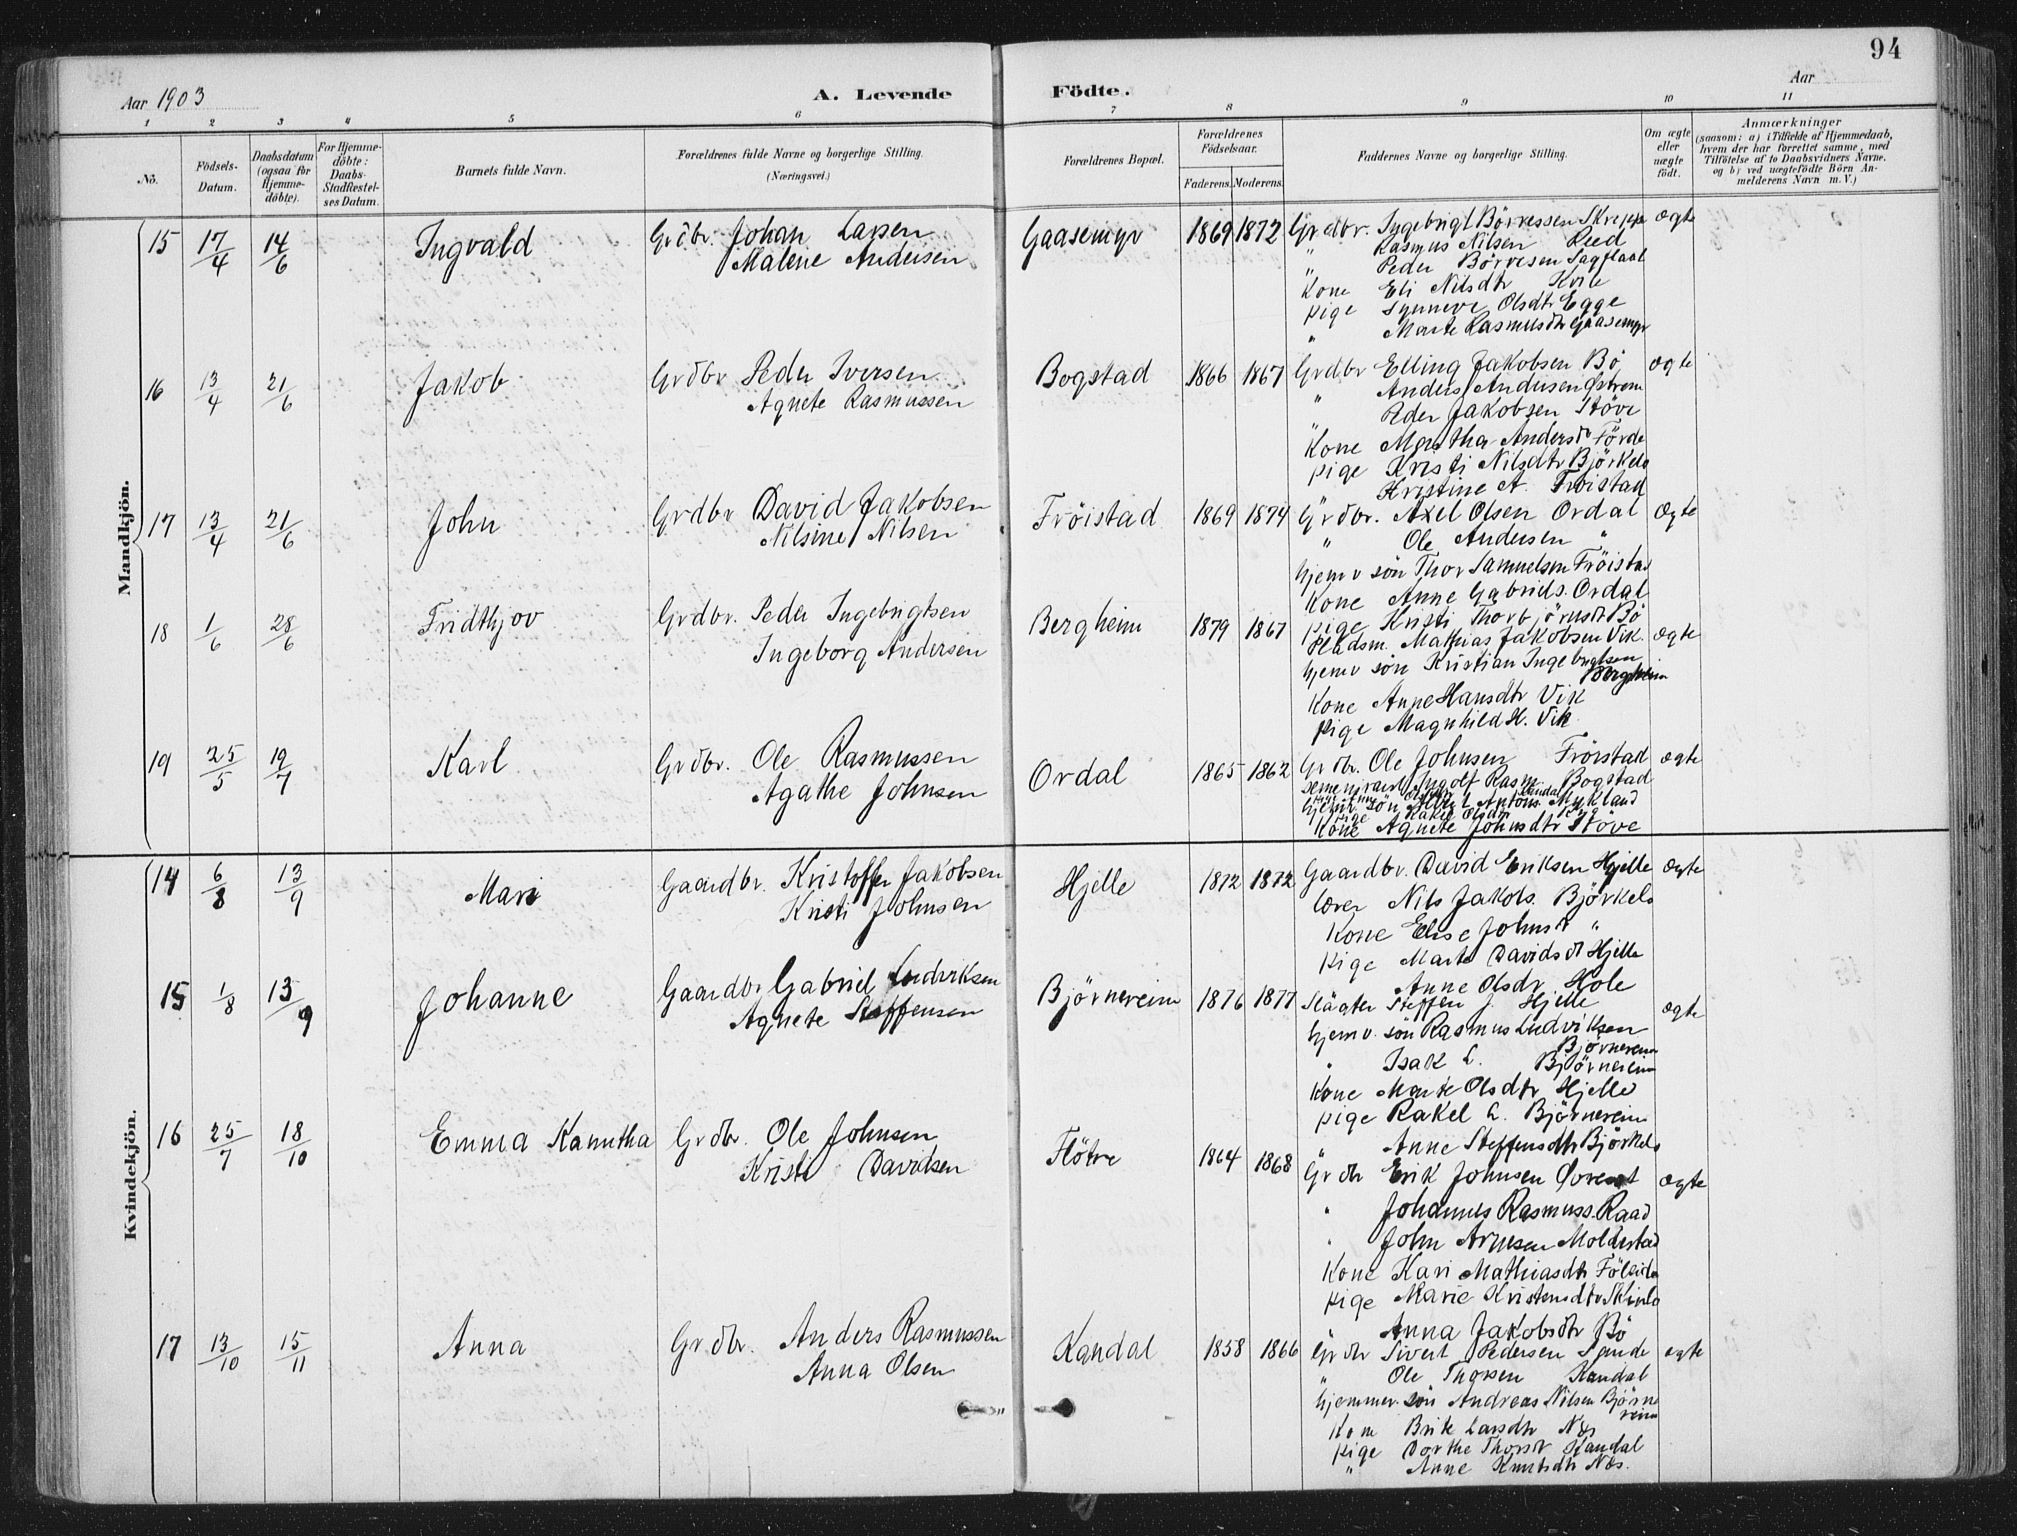 94
Aar 1903
A. Levende Födte.
Aar
1 2 3 4 5 6 7 8 9 10 11
No.
Födsels-Datum.
Daabsdatum (ogsaa for Hjemme-döbte).
For Hjemme-döbte: Daabs-Stadfæstel-ses Datum.
Barnets fulde Navn.
Forældrenes fulde Navne og borgerlige Stilling.
(Næringsvei.)
Forældrenes Bopæl.
Forældrenes Födselsaar.
Faderens. Moderens.
Faddernes Navne og borgerlige Stilling.
Om ægte eller uægte födt.
Anmærkninger
(saasom: a) i Tilfælde af Hjemmedaab,
hvem der har forrettet samme, med
Tilföielse af to Daabsvidners Navne.
og b) ved uægtefödte Börn An-
melderens Navn m. V.)
Mandkjön.
15 17/4 14/6 Ingvald Grdbr. Johan Larsen Gaasemyr 1869 1872 Grdbr. Ingebrigt Börresen Skreppe ægte
Malene Andersen
" Rasmus Nilsen Reed
" Peder Börresen
Kone Eli Nilsdtr Kvile
pige Synneve Olsdtr Egge
" Marte Rasmusdtr Gaasemyr
16 13/4 21/6 Jakob Grdbr Peder Iversen Bogstad 1866 1867 Grdbr Elling Jakobsen Bö ægte
Agnete Rasmussen
" Anders Andersen
Peder Jakobsen Störe
Kone Martha Andersdr Förde
pige Kristi Nilsdtr Björkelo
Kristine A. Fröistad
17 13/4 21/6 John Grdbr David Jakobsen Fröistad 1869 1874 Grdbr. Axel Olsen Ordal ægte
Nilsine Nilsen
" Ole Andersen "
hjemv sön Thor Samuelsen Fröistad
Kone Anne Gabriels. Ordal
pige Kristi Thorbjörnsdtr Bö
18 1/6 28/6 Fridthjov Grdbr. Peder Ingebrigtsen Bergheim 1879 1867 Pladsm. Mathias Jakobsen Vik. ægte
Ingeborg Andersen
hjemv sön Kristian Ingebrigtsen
Bergheim
Kone Anne Hansdtr Vik
pige Magnhild H. Vik.
19 25/5 19/7 Karl Grdbr. Ole Rasmussen Ordal 1865 1862 Grdbr. Ole Johnsen Fröistad ægte
Agathe Johnsen
Ingolf Rasm. Bogstad
hjemv. sön Albert Antons. Mykland
Kone Agnete Johnsdtr Störe
Kvindekjön.
14 6/8 13/9 Mari Gaardbr. Kristoffer Jakobsen Hjelle 1872 1872 Gaardbr. David Eriksen Hjelle ægte
Kristi Johnsen
lærer Nils Jakobs. Björkelo
Kone Elise Johnsdr "
pige Marta Davidsdt Hjelle
Anne Olsdr Hole
15 1/8 13/9 Johanne Gaardbr Gabriel Ludviksen Björnereim 1876 1877 Slägter Steffen J. Hjelle ægte
Agnete Steffensen
hjemv. sön Rasmus Ludviksen
Björnereim
" Isak L. Björnereim
Kone Marte Olsdtr Hjelle
pige Rakel L. Björnereim
" Anne Steffensdtr Björkelo
16 25/7 18/10 Emma Kanutha Grdbr. Ole Johnsen Flötre 1864 1868 Grdbr Erik Johnsen ægte
Kristi Davidsen
" Johannes Rasmuss. Raad
" John Arnesen Moldestad
Kone Kari Mathiasdtr Föleide
pige Marie Kristensdtr
Anna Jakobsdtr Bö
17 13/10 15/11 Anna Grdbr. Anders Rasmussen Kandal 1858 1866 Grdbr Sivert Pedersen ægte
Anna Olsen
" Ole Thorsen Kandal
hjemmev. sön Andreas Nilsen Björne
reim
Kone Brite Larsdtr Næs
pige Dorthe Thorsdr Kandal
" Anne Knutsdtr Næs.